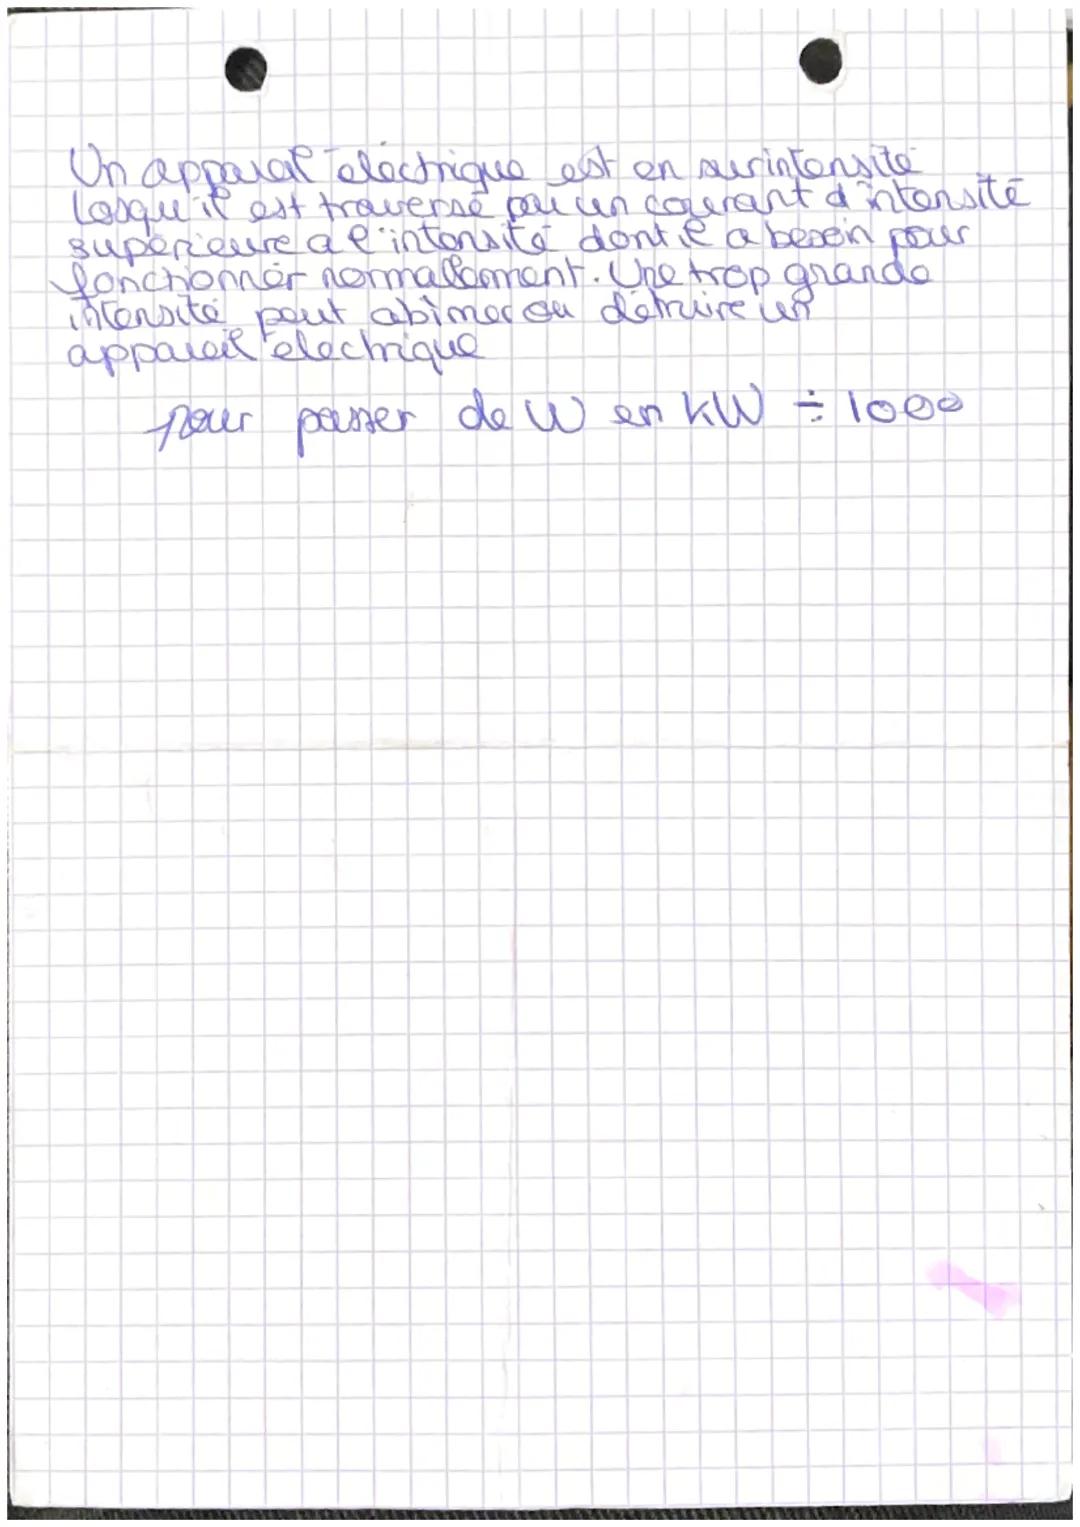 Un appareil électrique est en surintensité
losqu'il est traversé par un courant d'intensité
supérieure a l'intensité dont il a besoin pour
fonctionner normallement. Une trop grande
intensité peut abîmer ou détruire un
appareil électrique
pour passer de W en kW ÷ 1000